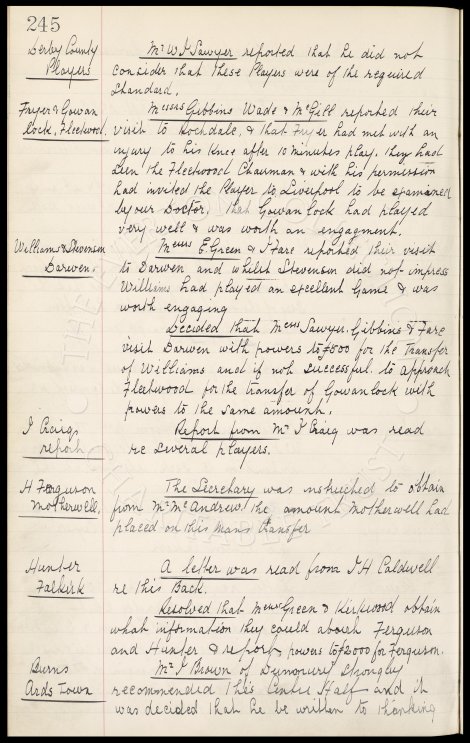 245
Derby County
Players
Mr W J Sawyer reported that he did not
consider that these Players were of the required
Standard.
Fryer & Gowan
lock, Fleetwood.
Messrs Gibbins Wade & McGill reported their
visit to Rochdale, & that Fryer had met with an
injury to his Knee after 10 minutes play. They had
seen the Fleetwood Chairman & with his permission
had invited the Player to Liverpool to be examined
by our Doctor. That Gowanlock had played
very well & was worth an engagment.
Williams & Stevenson
Darwen.
Messrs E. Green & J Fare reported their visit
to Darwen and whilst Stevenson did not impress
Williams had played an excellent Game & was
worth engaging
Decided that Messrs Sawyer. Gibbins & Fare
visit Darwen with powers to £500 for the Transfer
of Williams and if not successful to approach
Fleetwood for the transfer of Gowanlock with
powers to the same amount.
J Craigs
report
Report from Mr J Craig was read
re several players.
H Ferguson
Motherwell.
The Secretary was instructed to obtain
from Mr McAndrew the amount Motherwell had
placed on this mans transfer
Hunter
Falkirk
A letter was read from J H Caldwell
re this Back.
Resolved that Messrs Green & Kirkwood obtain
what information they could about Ferguson
and Hunter & report, powers to £2000 for Ferguson.
Burns
Ards Town
Mr J Brown of strongly
recommended this Centre Half and it
was decided that he be written to thanking